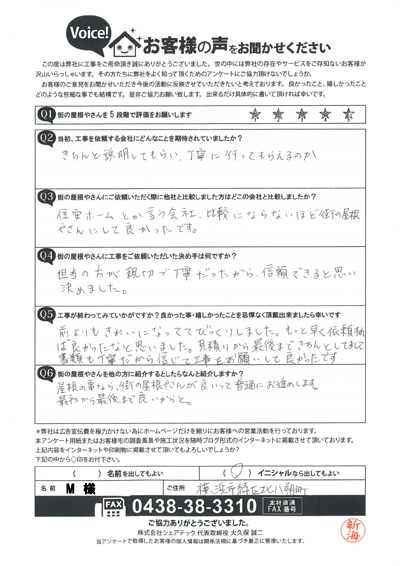 Voice!
お客様の声をお聞かせください
この度は弊社に工事をご用命頂き誠にありがとうございました。世の中には弊社の存在やサービスをご存知ないお客様が
沢山いらっしゃいます。その方たちに弊社をよく知って頂くためのアンケートにご協力頂けないでしょうか。
お客様のご意見をお聞かせいただき今後の活動に反映させていただきたいと考えております。良かったこと、嬉しかったこと
どのような些細な事でも結構です。是非ご協力お願い致します。出来るだけ具体的に書いて頂ければ幸いです。
Q1 街の屋根やさんを5段階で評価をお願いします
Q2 当初、工事を依頼する会社にどんなことを期待されていましたか?
きちんと説明してもらい、丁寧に行ってもらえるのか
Q3 街の屋根やさんにご依頼いただく際に他社と比較しました方はどこの会社と比較しましたか?
住宅ホームとか言う会社、比較にならないほど街の屋根
やさんにして良かったです。
Q4 街の屋根やさんに工事をご依頼いただいた決め手は何ですか?
担当の方が親切で丁寧だったから、信頼できると思い
決めました。
Q5 工事が終わってみていかがですか?良かった事・嬉しかったことを忌憚なく頂戴出来ましたら幸いです
前よりもきれいになっててびっくりしました。もっと早く依頼すれ
ば良かったなと思いました。見積りから最後まできちんとしてまして
書類も丁寧だから信じて工事をお願いして良かったです
Q6 街の屋根やさんを他の方に紹介するとしたらなんと紹介しますか?
屋根の事なら、街の屋根やさんが良いって普通にお進めします。
最初から最後まで良いからと。
*弊社は広告宣伝費を極力かけない為にホームページだけを頼りにお客様への営業活動を行っております。
本アンケート用紙またはお客様宅の調査風景や施工状況を随時ブログ形式のインターネットに掲載させて頂いております。
上記内容をインターネットや印刷物に掲載させて頂いてもよろしいでしょうか?
下記の中から○印をお付下さい。
( ) 名前を出してもよい (○) イニシャルなら出してもよい
名前 M 様 ご住所 横浜市緑区北八朔町
FAX 0438-38-3310 本社直通 FAX番号
ご協力ありがとうございました。
株式会社シェアテック 代表取締役 大久保 誠二
当アンケートで取得したお客様の個人情報は関係法規に基づき厳正に管理いたします。
新海